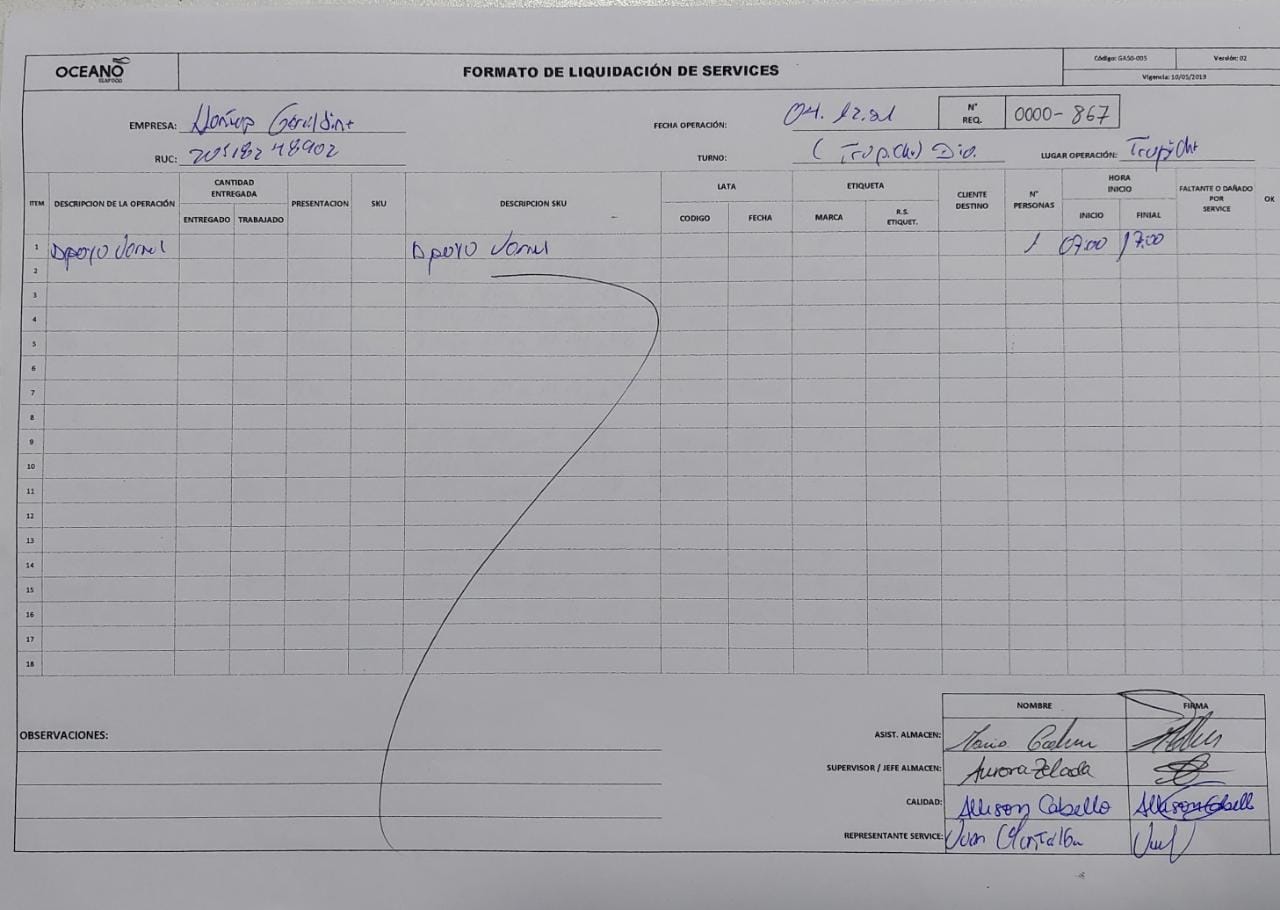 OCEANO
SEAFOOD
FORMATO DE LIQUIDACIÓN DE SERVICES
Código: GASG-005
Versión: 02
Vigencia: 10/05/2019
EMPRESA:
FECHA OPERACIÓN: 04.12.21
N° REQ. 0000-867
RUC: 20518248902
TURNO: Dia.
LUGAR OPERACIÓN:
ITEM
DESCRIPCION DE LA OPERACIÓN
CANTIDAD ENTREGADA
ENTREGADO
TRABAJADO
PRESENTACION
SKU
DESCRIPCION SKU
LATA
CODIGO
FECHA
ETIQUETA
MARCA
R.S. ETIQUET.
CLIENTE DESTINO
N° PERSONAS
HORA INICIO
INICIO
FINIAL
FALTANTE O DAÑADO POR SERVICE
OK
1 Apoyo Apoyo 1 07:00 17:00
2
3
4
5
6
7
8
9
10
11
12
13
14
15
16
17
18
OBSERVACIONES:
NOMBRE FIRMA
ASIST. ALMACEN:
SUPERVISOR / JEFE ALMACEN: Aurora Zelada
CALIDAD: Allison Cabello Allison Cabello
REPRESENTANTE SERVICE: Juan